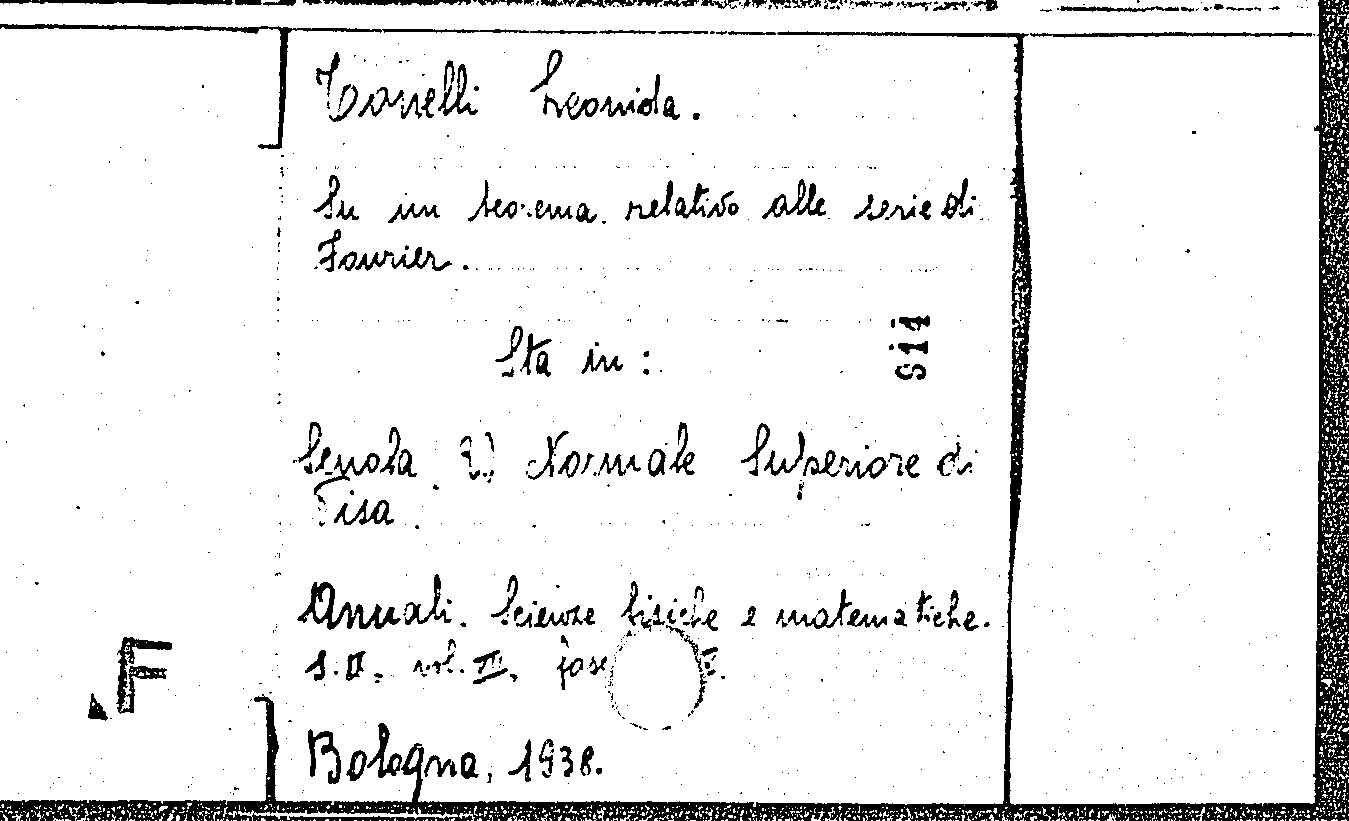 Tonelli Leonida.
Su un teorema relativo alle serie di
Fourier.
Sta in:
S11
Scuola R. Normale Superiore di
Pisa.
Annali. Scienze fisiche e matematiche.
S. II, vol. III, fasc
F
Bologna, 1938.